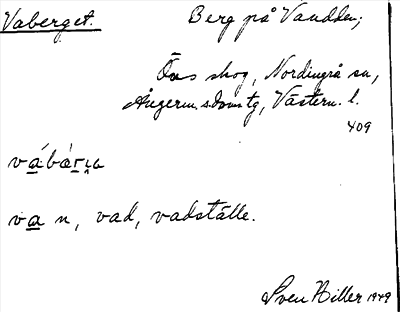 Vaberget. Berg på Vaudden;
Öns skog, Nordingrå sn,
Ångerm. s. domstg, Västern. l.
409
vábárịa
va n, vad, vadställe.
Sven Hiller 1949